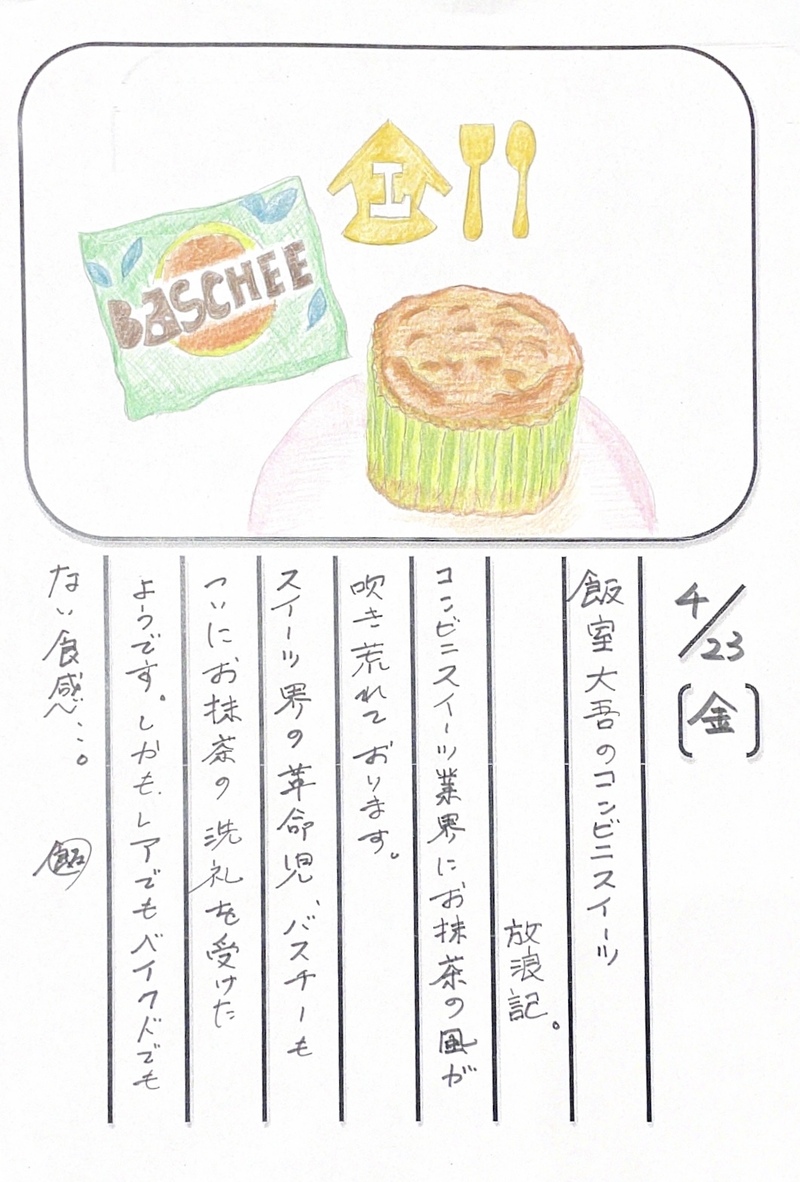 BaSCHEE
I
4/23
[金]
飯室大吾のコンビニスイーツ
放浪記。
コンビニスイーツ業界にお抹茶の風が
吹き荒れております。
スイーツ界の革命児、バスチーも
ついにお抹茶の洗礼を受けた
ようです。しかも、レアでもベイクドでも
ない食感…。